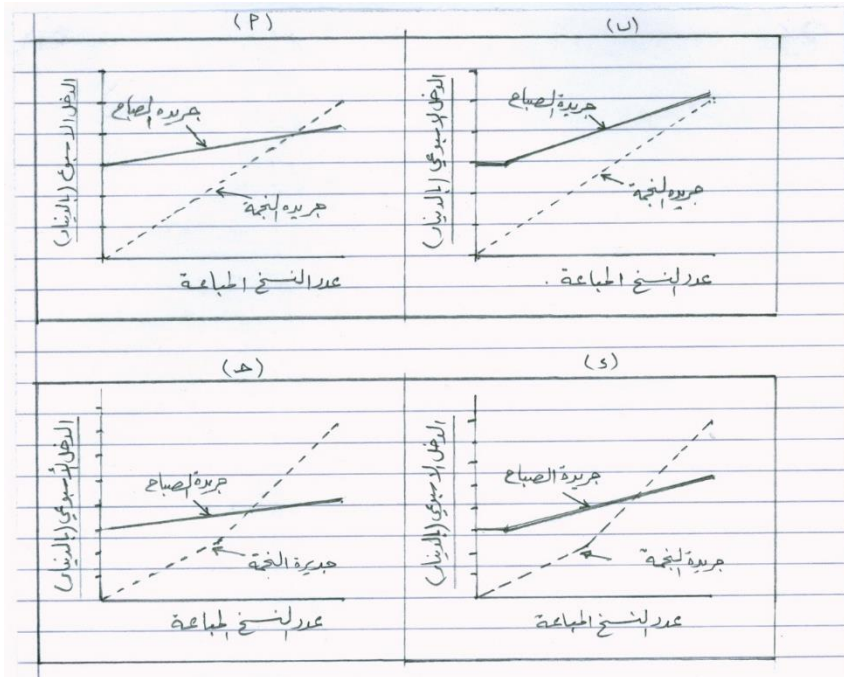 (ب) (أ)
الدخل الاسبوعي (بالدينار)
جريدة الصباح
جريدة النجمة
عدد النسخ المباعة
الدخل الاسبوعي (بالدينار)
جريدة الصباح
جريدة النجمة
عدد النسخ المباعة .
(د) (حـ)
الدخل الأسبوعي (بالدينار)
جريدة الصباح
جديرة النجمة
عدد النسخ المباعة
الدخل الاسبوعي (بالدينار)
جريدة الصباح
جريدة النجمة
عدد النسخ المباعة